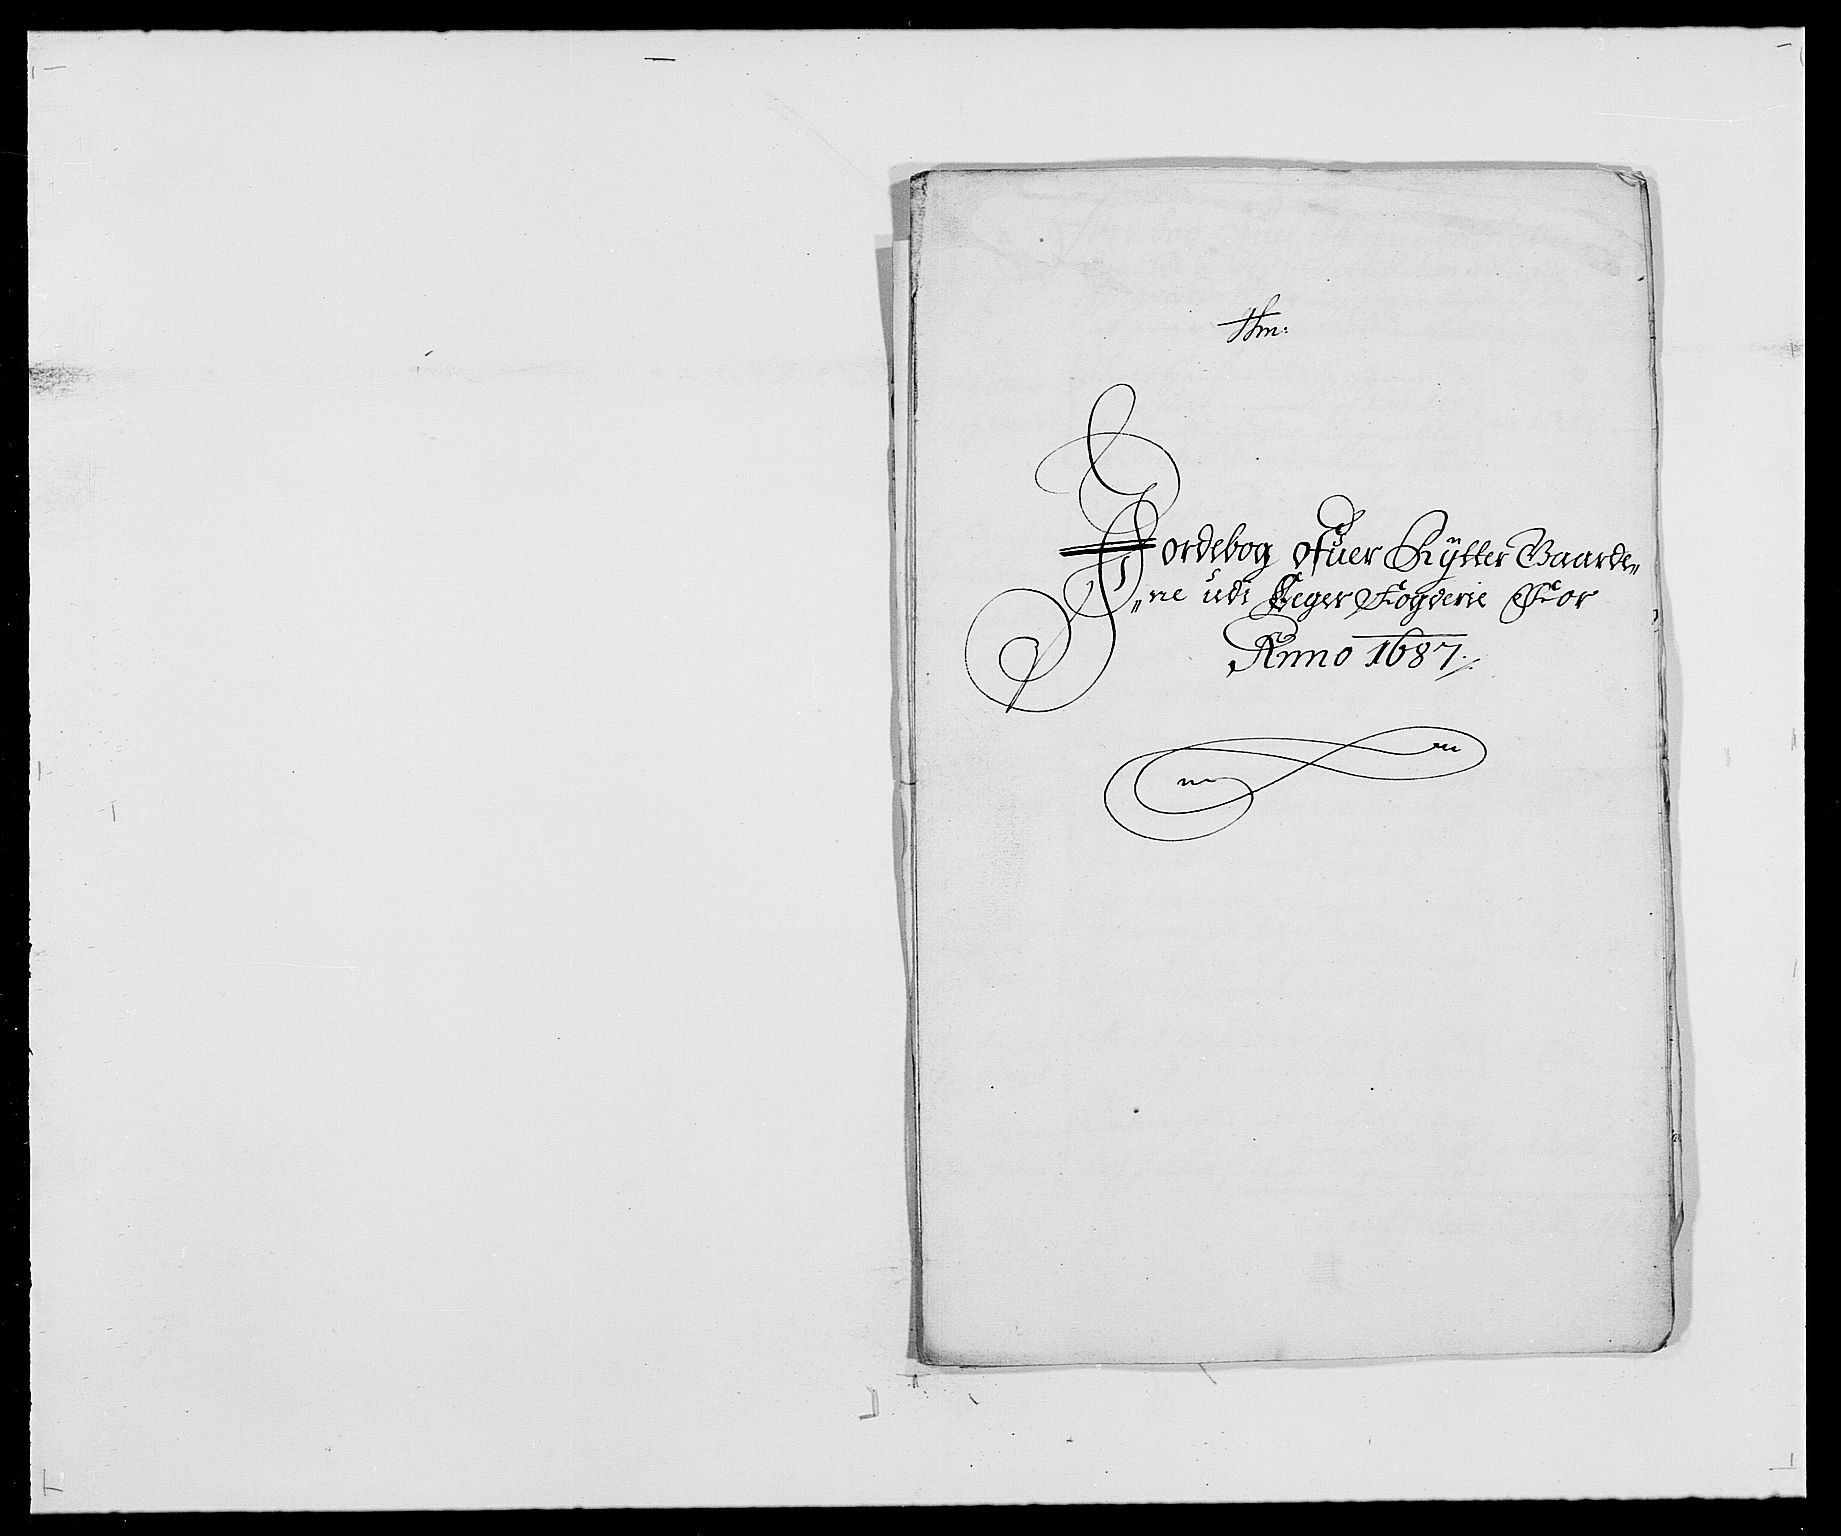 Jordebog ofuer Rÿtter Gaarde„
„ne udi Eger Fogderie For
Anno 1687./.